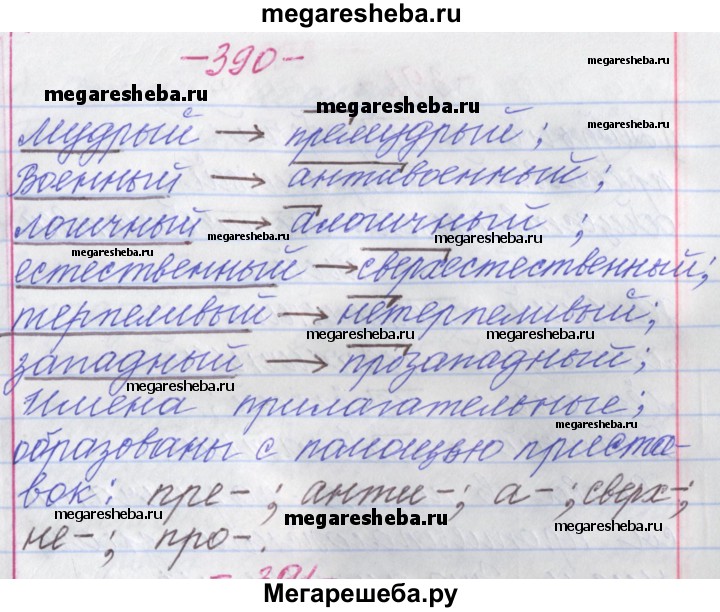 megaresheba.ru
-390-
megaresheba.ru
megaresheba.ru
megaresheba.ru
мудрый → премудрый;
megaresheba.ru
Военный → антивоенный;
логичный → алогичный;
megaresheba.ru
megaresheba.ru
megaresheba.ru
естественный → сверхестественный;
терпеливый → нетерпеливый;
megaresheba.ru
megaresheba.ru
западный → прозападный;
megaresheba.ru
megaresheba.ru
Имена прилагательные;
megaresheba.ru
образованы с помощью приста-
вок: пре-; анти-; а-; сверх-;
megaresheba.ru
megaresheba.ru
megaresheba.ru
не-; про-.
- 391-
Мегарешеба.ру